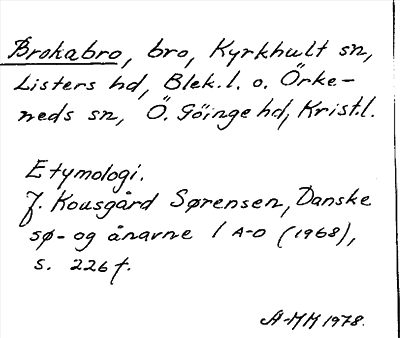 Brokabro, bro, Kyrkhult sn,
Listers hd, Blek.l. o. Örke-
neds sn, Ö. Göinge hd, Krist.l.
Etymologi.
J. Kousgård Sørensen, Danske
sø- og ånavne 1 A-D (1968),
s. 226 f.
A-MH 1978.